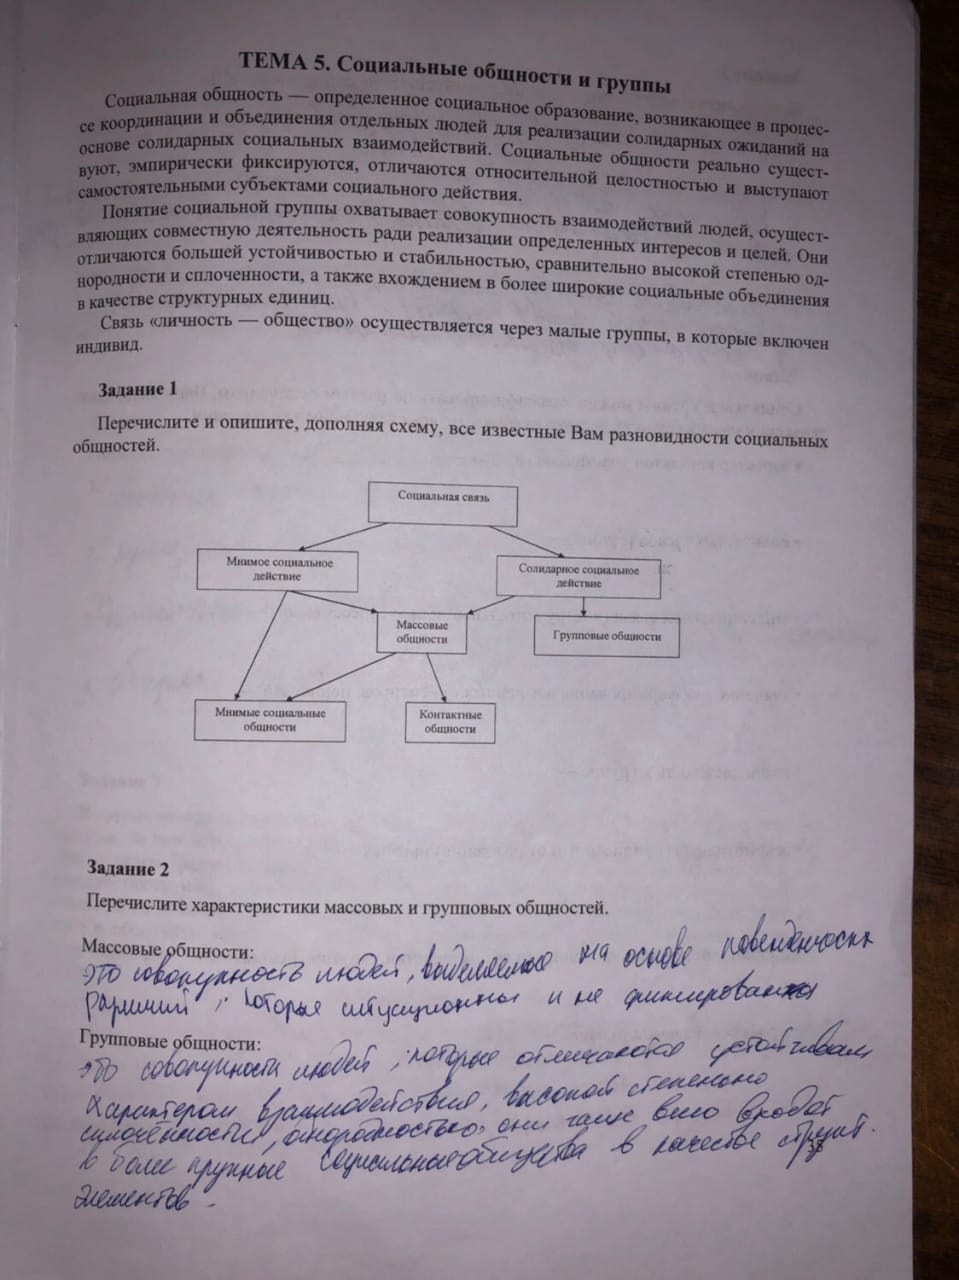 ТЕМА 5. Социальные общности и группы
Социальная общность — определенное социальное образование, возникающее в процес-
се координации и объединения отдельных людей для реализации солидарных ожиданий на
основе солидарных социальных взаимодействий. Социальные общности реально сущест-
вуют, эмпирически фиксируются, отличаются относительной целостностью и выступают
самостоятельными субъектами социального действия.
Понятие социальной группы охватывает совокупность взаимодействий людей, осущест-
вляющих совместную деятельность ради реализации определенных интересов и целей. Они
отличаются большей устойчивостью и стабильностью, сравнительно высокой степенью од-
нородности и сплоченности, а также вхождением в более широкие социальные объединения
в качестве структурных единиц.
Связь «личность — общество» осуществляется через малые группы, в которые включен
индивид.
Задание 1
Перечислите и опишите, дополняя схему, все известные Вам разновидности социальных
общностей.
Социальная связь
Мнимое социальное
действие
Солидарное социальное
действие
Массовые
общности
Групповые общности
Мнимые социальные
общности
Контактные
общности
Задание 2
Перечислите характеристики массовых и групповых общностей.
Массовые общности:
это совокупность людей, выделяемое на основе поведенческих
различий, которые ситуационны и не фиксированы
Групповые общности:
это совокупности людей, которые отличаются устойчивым
характером взаимодействия, высокой степенью
сплочённости, однородностью, они чаще всего входят
в более крупные социальные общества в качестве структ.
элементов.